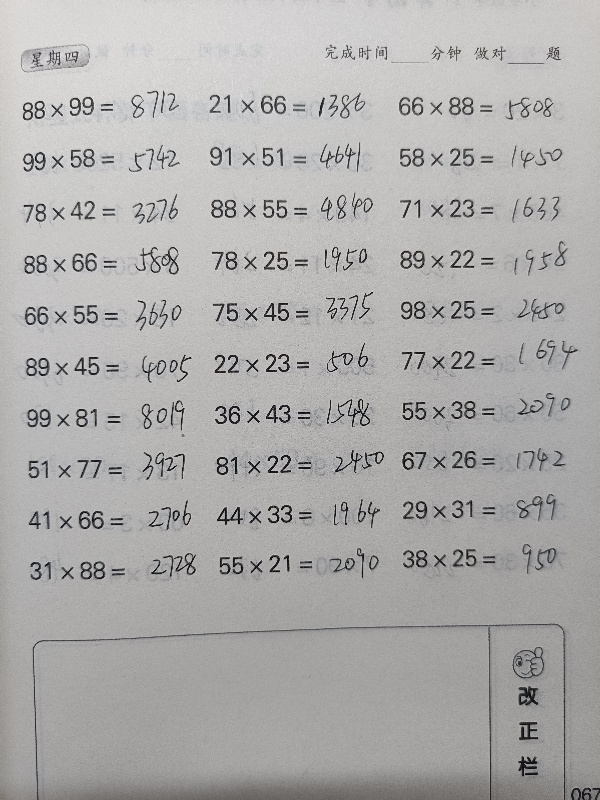 星期四 完成时间____分钟 做对____题
88×99= 8712 21×66= 1386 66×88= 5808
99×58= 5742 91×51= 4641 58×25= 1450
78×42= 3276 88×55= 4840 71×23= 1633
88×66= 5808 78×25= 1950 89×22= 1958
66×55= 3630 75×45= 3375 98×25= 2450
89×45= 4005 22×23= 506 77×22= 1694
99×81= 8019 36×43= 1548 55×38= 2090
51×77= 3927 81×22= 2450 67×26= 1742
41×66= 2706 44×33= 1964 29×31= 899
31×88= 2728 55×21= 2090 38×25= 950
改正栏
067